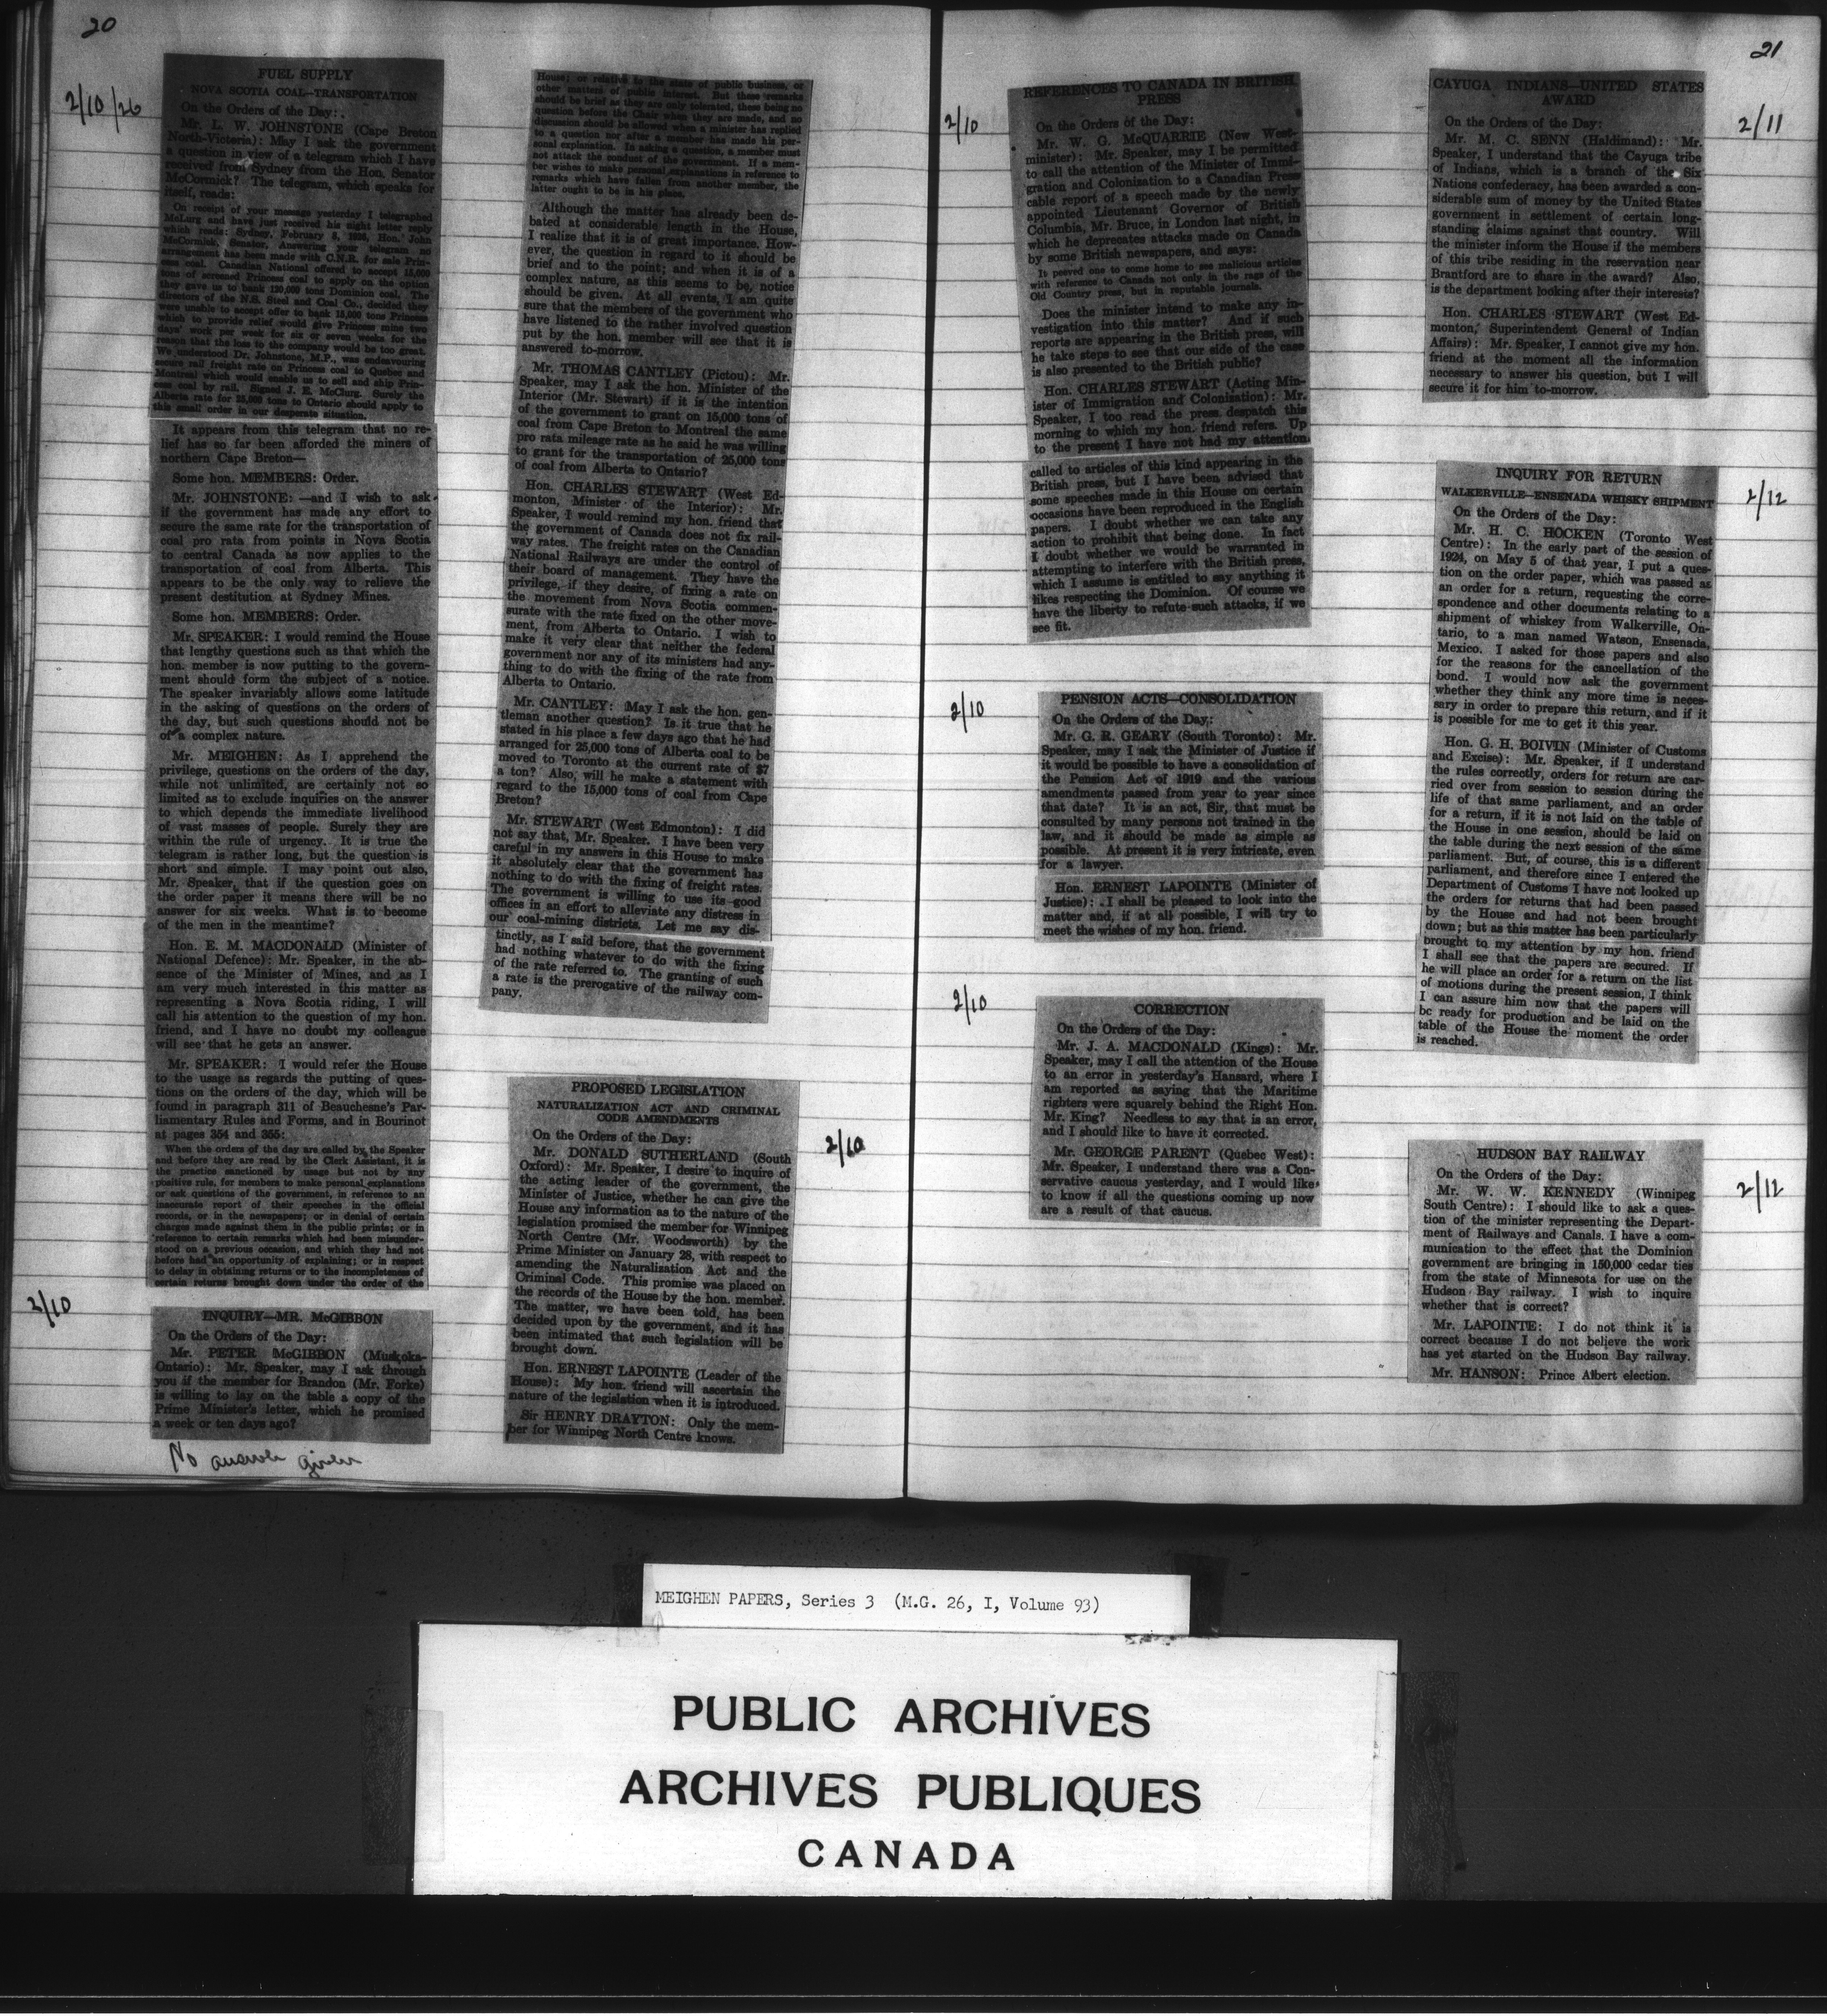 20
2/10/26
FUEL SUPPLY
NOVA SCOTIA COAL—TRANSPORTATION
On the Orders of the Day:
Mr. L. W. JOHNSTONE (Cape Breton
North-Victoria): May I ask the government
a question in view of a telegram which I have
received from Sydney from the Hon. Senator
McCormick? The telegram, which speaks for
itself, reads:
On receipt of your message yesterday I telegraphed
McLurg and have just received his night letter reply
which reads: Sydney, February 8, 1926, Hon. John
McCormick, Senator. Answering your telegram no
arrangement has been made with C.N.R. for sale Prin-
cess coal. Canadian National offered to accept 15,000
tons of screened Princess coal to apply on the option
they gave us to bank 120,000 tons Dominion coal. The
directors of the N.S. Steel and Coal Co., decided they
were unable to accept offer to bank 15,000 tons Princess
which to provide relief would give Princess mine two
days' work per week for six or seven weeks for the
reason that the loss to the company would be too great.
We understood Dr. Johnstone, M.P., was endeavouring
secure rail freight rate on Princess coal to Quebec and
Montreal which would enable us to sell and ship Prin-
cess coal by rail. Signed J. E. McClurg. Surely the
Alberta rate for 25,000 tons to Ontario should apply to
this small order in our desperate situation.
It appears from this telegram that no re-
lief has so far been afforded the miners of
northern Cape Breton—
Some hon. MEMBERS: Order.
Mr. JOHNSTONE: —and I wish to ask
if the government has made any effort to
secure the same rate for the transportation of
coal pro rata from points in Nova Scotia
to central Canada as now applies to the
transportation of coal from Alberta. This
appears to be the only way to relieve the
present destitution at Sydney Mines.
Some hon. MEMBERS: Order.
Mr. SPEAKER: I would remind the House
that lengthy questions such as that which the
hon. member is now putting to the govern-
ment should form the subject of a notice.
The speaker invariably allows some latitude
in the asking of questions on the orders of
the day, but such questions should not be
of a complex nature.
Mr. MEIGHEN: As I apprehend the
privilege, questions on the orders of the day,
while not unlimited, are certainly not so
limited as to exclude inquiries on the answer
to which depends the immediate livelihood
of vast masses of people. Surely they are
within the rule of urgency. It is true the
telegram is rather long, but the question is
short and simple. I may point out also,
Mr. Speaker, that if the question goes on
the order paper it means there will be no
answer for six weeks. What is to become
of the men in the meantime?
Hon. E. M. MACDONALD (Minister of
National Defence): Mr. Speaker, in the ab-
sence of the Minister of Mines, and as I
am very much interested in this matter as
representing a Nova Scotia riding, I will
call his attention to the question of my hon.
friend, and I have no doubt my colleague
will see that he gets an answer.
Mr. SPEAKER: I would refer the House
to the usage as regards the putting of ques-
tions on the orders of the day, which will be
found in paragraph 311 of Beauchesne's Par-
liamentary Rules and Forms, and in Bourinot
at pages 354 and 355:
When the orders of the day are called by the Speaker
and before they are read by the Clerk Assistant, it is
the practice sanctioned by usage but not by any
positive rule, for members to make personal explanations
or ask questions of the government, in reference to an
inaccurate report of their speeches in the official
records, or in the newspapers; or in denial of certain
charges made against them in the public prints; or in
reference to certain remarks which had been misunder-
stood on a previous occasion, and which they had not
before had an opportunity of explaining; or in respect
to delay in obtaining returns or to the incompleteness of
certain returns brought down under the order of the
2/10
INQUIRY—MR. McGIBBON
On the Orders of the Day:
Mr. PETER McGIBBON (Muskoka-
Ontario): Mr. Speaker, may I ask through
you if the member for Brandon (Mr. Forke)
is willing to lay on the table a copy of the
Prime Minister's letter, which he promised
a week or ten days ago?
No answer given
House; or relative to the state of public business, or
other matters of public interest. But these remarks
should be brief as they are only tolerated, there being no
question before the Chair when they are made, and no
discussion should be allowed when a minister has replied
to a question nor after a member has made his per-
sonal explanation. In asking a question, a member must
not attack the conduct of the government. If a mem-
ber wishes to make personal explanations in reference to
remarks which have fallen from another member, the
latter ought to be in his place.
Although the matter has already been de-
bated at considerable length in the House,
I realize that it is of great importance. How-
ever, the question in regard to it should be
brief and to the point; and when it is of a
complex nature, as this seems to be, notice
should be given. At all events, I am quite
sure that the members of the government who
have listened to the rather involved question
put by the hon. member will see that it is
answered to-morrow.
Mr. THOMAS CANTLEY (Pictou): Mr.
Speaker, may I ask the hon. Minister of the
Interior (Mr. Stewart) if it is the intention
of the government to grant on 15,000 tons of
coal from Cape Breton to Montreal the same
pro rata mileage rate as he said he was willing
to grant for the transportation of 25,000 tons
of coal from Alberta to Ontario?
Hon. CHARLES STEWART (West Ed-
monton, Minister of the Interior): Mr.
Speaker, I would remind my hon. friend that
the government of Canada does not fix rail-
way rates. The freight rates on the Canadian
National Railways are under the control of
their board of management. They have the
privilege, if they desire, of fixing a rate on
the movement from Nova Scotia commen-
surate with the rate fixed on the other move-
ment, from Alberta to Ontario. I wish to
make it very clear that neither the federal
government nor any of its ministers had any-
thing to do with the fixing of the rate from
Alberta to Ontario.
Mr. CANTLEY: May I ask the hon. gen-
tleman another question? Is it true that he
stated in his place a few days ago that he had
arranged for 25,000 tons of Alberta coal to be
moved to Toronto at the current rate of $7
a ton? Also, will he make a statement with
regard to the 15,000 tons of coal from Cape
Breton?
Mr. STEWART (West Edmonton): I did
not say that, Mr. Speaker. I have been very
careful in my answers in this House to make
it absolutely clear that the government has
nothing to do with the fixing of freight rates.
The government is willing to use its good
offices in an effort to alleviate any distress in
our coal-mining districts. Let me say dis-
tinctly, as I said before, that the government
had nothing whatever to do with the fixing
of the rate referred to. The granting of such
a rate is the prerogative of the railway com-
pany.
2/10
PROPOSED LEGISLATION
NATURALIZATION ACT AND CRIMINAL
CODE AMENDMENTS
On the Orders of the Day:
Mr. DONALD SUTHERLAND (South
Oxford): Mr. Speaker, I desire to inquire of
the acting leader of the government, the
Minister of Justice, whether he can give the
House any information as to the nature of the
legislation promised the member for Winnipeg
North Centre (Mr. Woodsworth) by the
Prime Minister on January 28, with respect to
amending the Naturalization Act and the
Criminal Code. This promise was placed on
the records of the House by the hon. member.
The matter, we have been told, has been
decided upon by the government, and it has
been intimated that such legislation will be
brought down.
Hon. ERNEST LAPOINTE (Leader of the
House): My hon. friend will ascertain the
nature of the legislation when it is introduced.
Sir HENRY DRAYTON: Only the mem-
ber for Winnipeg North Centre knows.
21
2/10
REFERENCES TO CANADA IN BRITISH
PRESS
On the Orders of the Day:
Mr. W. G. McQUARRIE (New West-
minister): Mr. Speaker, may I be permitted
to call the attention of the Minister of Immi-
gration and Colonization to a Canadian Press
cable report of a speech made by the newly
appointed Lieutenant Governor of British
Columbia, Mr. Bruce, in London last night, in
which he deprecates attacks made on Canada
by some British newspapers, and says:
It peeved one to come home to see malicious articles
with reference to Canada not only in the rags of the
Old Country press, but in reputable journals.
Does the minister intend to make any in-
vestigation into this matter? And if such
reports are appearing in the British press, will
he take steps to see that our side of the case
is also presented to the British public?
Hon. CHARLES STEWART (Acting Min-
ister of Immigration and Colonization): Mr.
Speaker, I too read the press despatch this
morning to which my hon. friend refers. Up
to the present I have not had my attention
called to articles of this kind appearing in the
British press, but I have been advised that
some speeches made in this House on certain
occasions have been reproduced in the English
papers. I doubt whether we can take any
action to prohibit that being done. In fact
I doubt whether we would be warranted in
attempting to interfere with the British press,
which I assume is entitled to say anything it
likes respecting the Dominion. Of course we
have the liberty to refute such attacks, if we
see fit.
2/10
PENSION ACTS—CONSOLIDATION
On the Orders of the Day:
Mr. G. R. GEARY (South Toronto): Mr.
Speaker, may I ask the Minister of Justice if
it would be possible to have a consolidation of
the Pension Act of 1919 and the various
amendments passed from year to year since
that date? It is an act, Sir, that must be
consulted by many persons not trained in the
law, and it should be made as simple as
possible. At present it is very intricate, even
for a lawyer.
Hon. ERNEST LAPOINTE (Minister of
Justice): I shall be pleased to look into the
matter and, if at all possible, I will try to
meet the wishes of my hon. friend.
2/10
CORRECTION
On the Orders of the Day:
Mr. J. A. MACDONALD (Kings): Mr.
Speaker, may I call the attention of the House
to an error in yesterday's Hansard, where I
am reported as saying that the Maritime
righters were squarely behind the Right Hon.
Mr. King? Needless to say that is an error,
and I should like to have it corrected.
Mr. GEORGE PARENT (Quebec West):
Mr. Speaker, I understand there was a Con-
servative caucus yesterday, and I would like
to know if all the questions coming up now
are a result of that caucus.
CAYUGA INDIANS—UNITED STATES
AWARD
2/11
On the Orders of the Day:
Mr. M. C. SENN (Haldimand): Mr.
Speaker, I understand that the Cayuga tribe
of Indians, which is a branch of the Six
Nations confederacy, has been awarded a con-
siderable sum of money by the United States
government in settlement of certain long-
standing claims against that country. Will
the minister inform the House if the members
of this tribe residing in the reservation near
Brantford are to share in the award? Also,
is the department looking after their interests?
Hon. CHARLES STEWART (West Ed-
monton, Superintendent General of Indian
Affairs): Mr. Speaker, I cannot give my hon.
friend at the moment all the information
necessary to answer his question, but I will
secure it for him to-morrow.
INQUIRY FOR RETURN
WALKERVILLE—ENSENADA WHISKY SHIPMENT
2/12
On the Orders of the Day:
Mr. H. C. HOCKEN (Toronto West
Centre): In the early part of the session of
1924, on May 5 of that year, I put a ques-
tion on the order paper, which was passed as
an order for a return, requesting the corre-
spondence and other documents relating to a
shipment of whiskey from Walkerville, On-
tario, to a man named Watson, Ensenada,
Mexico. I asked for those papers and also
for the reasons for the cancellation of the
bond. I would now ask the government
whether they think any more time is neces-
sary in order to prepare this return, and if it
is possible for me to get it this year.
Hon. G. H. BOIVIN (Minister of Customs
and Excise): Mr. Speaker, if I understand
the rules correctly, orders for return are car-
ried over from session to session during the
life of that same parliament, and an order
for a return, if it is not laid on the table of
the House in one session, should be laid on
the table during the next session of the same
parliament. But, of course, this is a different
parliament, and therefore since I entered the
Department of Customs I have not looked up
the orders for returns that had been passed
by the House and had not been brought
down; but as this matter has been particularly
brought to my attention by my hon. friend
I shall see that the papers are secured. If
he will place an order for a return on the list
of motions during the present session, I think
I can assure him now that the papers will
be ready for production and be laid on the
table of the House the moment the order
is reached.
HUDSON BAY RAILWAY
2/12
On the Orders of the Day:
Mr. W. W. KENNEDY (Winnipeg
South Centre): I should like to ask a ques-
tion of the minister representing the Depart-
ment of Railways and Canals. I have a com-
munication to the effect that the Dominion
government are bringing in 150,000 cedar ties
from the state of Minnesota for use on the
Hudson Bay railway. I wish to inquire
whether that is correct?
Mr. LAPOINTE: I do not think it is
correct because I do not believe the work
has yet started on the Hudson Bay railway.
Mr. HANSON: Prince Albert election.
MEIGHEN PAPERS, Series 3 (M.G. 26, I, Volume 93)
PUBLIC ARCHIVES
ARCHIVES PUBLIQUES
CANADA